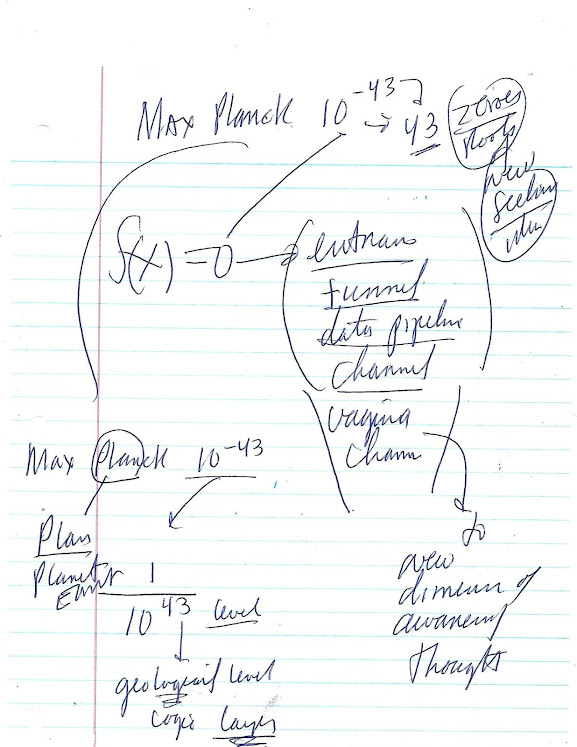 Max Planck 10^-43 → 43
zeroes
roots
new
f(x) = 0 →
entrans
funnel
data pipeline
channel
vagina
chann
to
new
dimenn of
awareness
thought
Max Planck 10^-43
Plan
Planet
Earth
1
10^43 level
geological level
logic layer